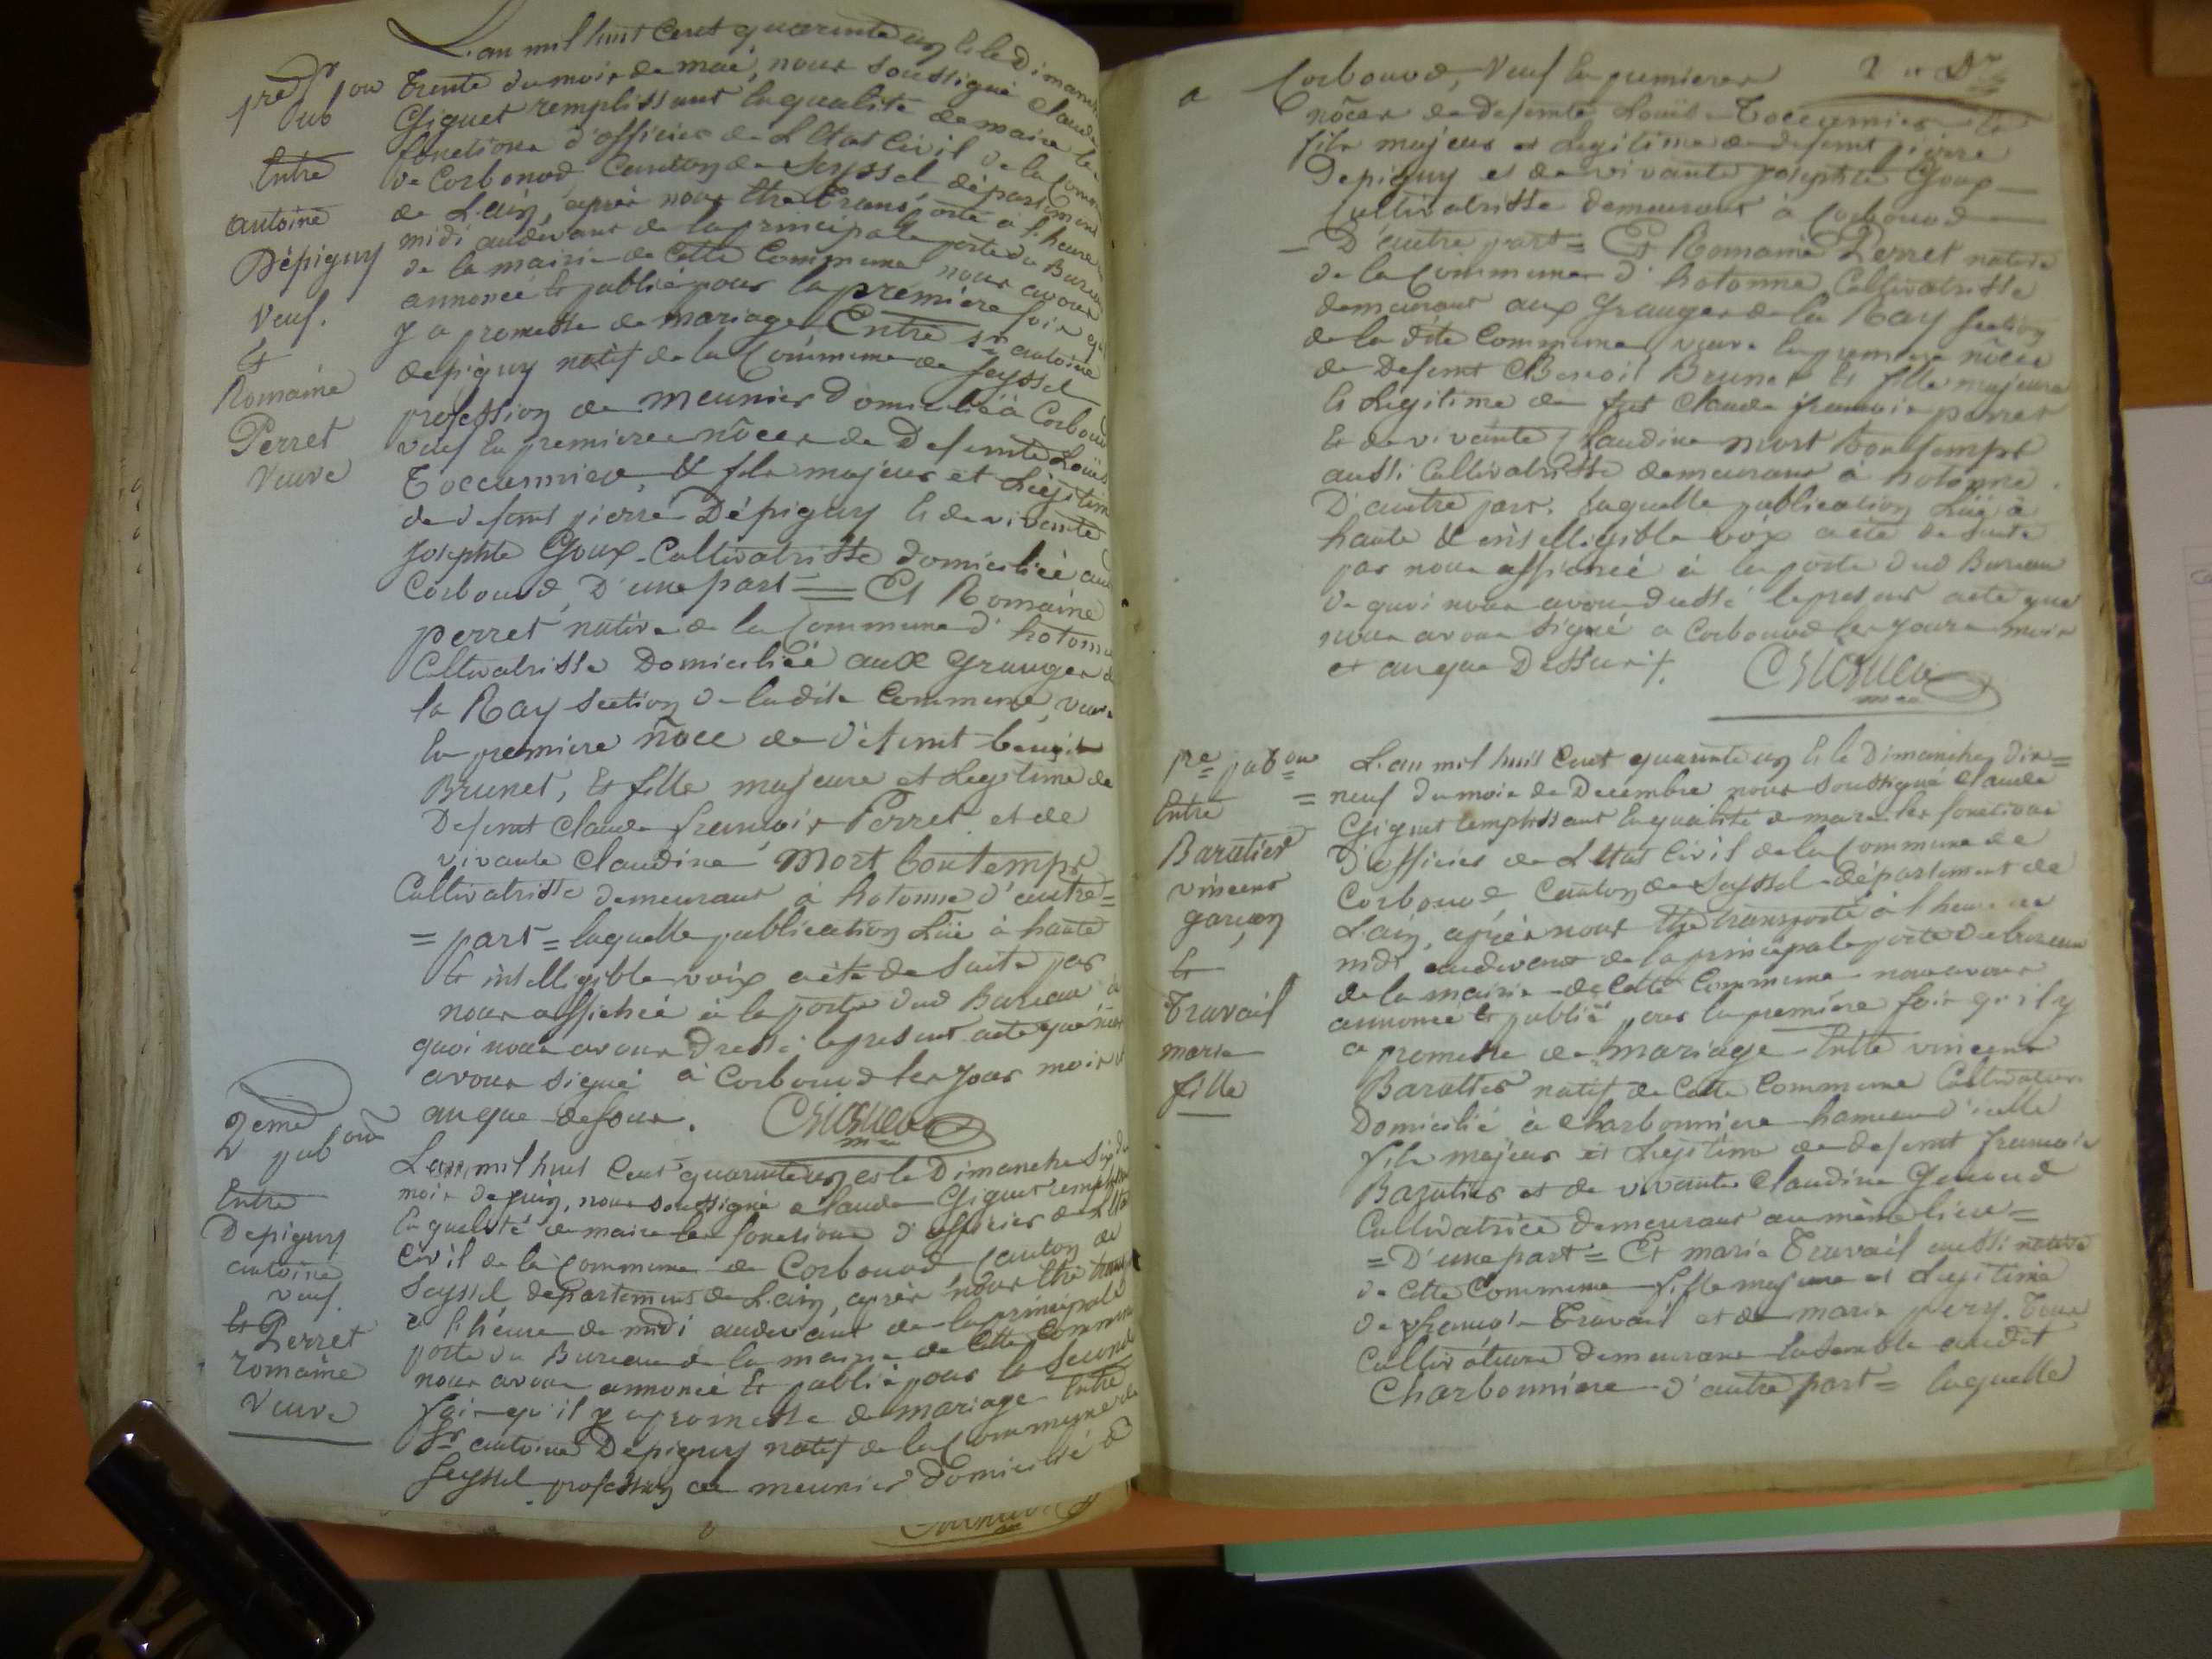 1re pub ou
Entre
antoine
Dépigny
Veuf.
Et
Romaine
Perret
Veuve
L'an mil huit Cent quarante un & le Dimanche
trente du mois de mai, nous soussigné Claude
Giguet remplissant la qualité de maire les
fonctions d'officier de L'Etat Civil de la Commune
de Corbonod, Canton de Seyssel département
de L'ain, après nous être transporté à l'heure de
midi audevant de la principale porte du Bureau
de la mairie de cette Commune nous avons
annoncé & publié pour la première fois qu'il
y a promesse de mariage Entre Sr antoine
depigny natif de la Commune de Seyssel
profession de meunier Domicilié à Corbonod
veuf En premieres nôces de Defunte Louise
Toccannier, & fils majeur et Légitime
de defunt pierre Dépigny & de vivante
Josephte Goux Cultivatrisse domiciliée au
Corbonod, D'une part = Et Romaine
perret native de la Commune d'hotonne
Cultivatrisse Domiciliée aux Granges de
la Ray Section de ladite Commune, veuve
En premiere nôce de Défunt benoit
Brunet, & fille majeure et Legitime de
Defunt Claude francois Perret et de
vivante Claudine Mort bontemps
Cultivatrisse demeurant à hotonne d'autre =
= part = laquelle publication Lüe à haute
& intelligible voix a été de suite par
nous affichée à la porte dud Bureau de
quoi nous avons Dressé le present acte que nous
avons signé à Corbonod les jour mois et
an que dessus. CGiguet
mre
2eme
pub ou
Entre
Depigny
antoine
veuf.
Et Perret
romaine
Veuve
L'an mil huit Cent quarante un et le Dimanche Six du
mois de juin, nous soussigné Claude Giguet remplissant
la qualité de maire les fonctions d'officier de L'Etat
Civil de la Commune de Corbonod Canton de
Seyssel département de L'ain, après nous être transporté
à l'heure de midi audevant de la principale
porte du Bureau de la mairie de Cette Commune
nous avons annoncé & publié pour la Seconde
fois qu'il y a promesse de mariage Entre
Sr antoine Depigny natif de la Commune de
Seyssel profession de meunier Domicilié à
a Corbonod, Veuf En premieres
nôces de Defunte Louise Toccannier &
fils majeur et Legitime de defunt pierre
Depigny et de vivante josephte Goux
Cultivatrisse demeurant à Corbonod
D'autre part = Et Romaine Perret native
de la Commune d'hotonne Cultivatrisse
demeurant aux Granges de la Ray Section
de la dite Commune veuve En premiere nôces
de Defunt Benoit Brunet & fille majeure
& Legitime de fut Claude francois perret
& de vivante Claudine mort bontemps
aussi Cultivatrisse demeurant à hotonne
D'autre part. laquelle publication Lüe à
haute & intelligible voix a été de suite
par nous affichée à la porte dud Bureau
de quoi nous avons dressé le present acte que
nous avons signé a Corbonod les jours mois
et an que Dessus. CGiguet
mre
pre pub ou
Entre
Baratier
vincent
garçon
&
Travail
marie
fille
L'an mil huit Cent quarante un & le Dimanche dix =
= neuf du mois de Decembre nous soussigné Claude
Giguet remplissant la qualité de maire les fonctions
D'officier de L'Etat Civil de la Commune de
Corbonod, Canton de Seyssel département de
L'ain, après nous être transporté à l'heure de
midi audevant de la principale porte du bureau
de la mairie de Cette Commune nous avons
annoncé & publié pour la première fois qu'il y
a promesse de mariage Entre vincent
Baratier natif de Cette Commune Cultivateur
Domicilié à Charbonniere hameau d'icelle
fils majeur et Legitime de defunt francois
Baratier et de vivante Claudine Genoud
Cultivatrice demeurant au même lieu =
= D'une part = Et marie Travail aussi native
de Cette Commune fille majeure et Legitime
de francois Travail et de marie pery. Tous
Cultivateurs demeurans Ensemble audit
Charbonniere d'autre part = laquelle